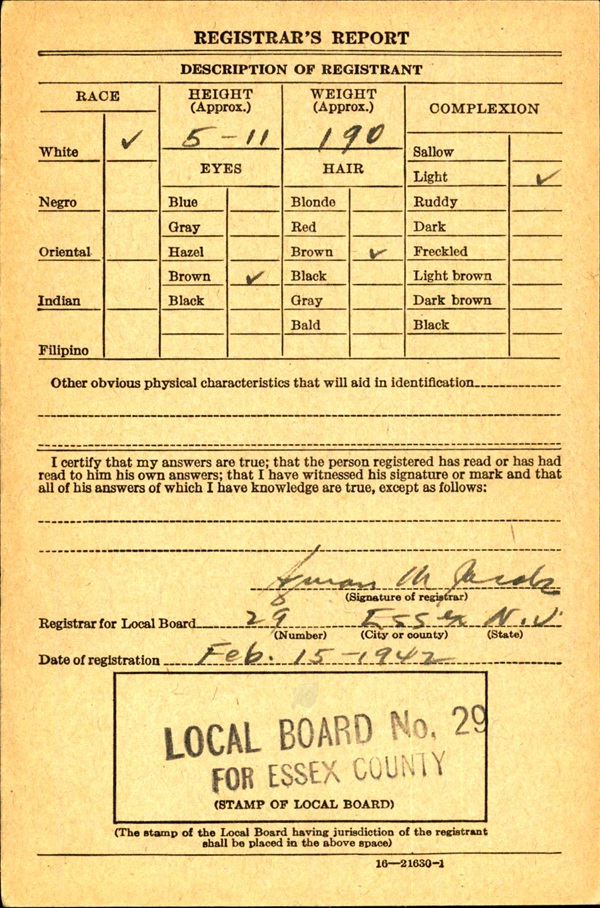 REGISTRAR'S REPORT
DESCRIPTION OF REGISTRANT
RACE
HEIGHT (Approx.)
WEIGHT (Approx.)
COMPLEXION
5-11
190
White ✓
Negro
Oriental
Indian
Filipino
EYES
Blue
Gray
Hazel
Brown ✓
Black
HAIR
Blonde
Red
Brown ✓
Black
Gray
Bald
Sallow
Light ✓
Ruddy
Dark
Freckled
Light brown
Dark brown
Black
Other obvious physical characteristics that will aid in identification
I certify that my answers are true; that the person registered has read or has had
read to him his own answers; that I have witnessed his signature or mark and that
all of his answers of which I have knowledge are true, except as follows:
M
(Signature of registrar)
Registrar for Local Board 29 Essex N.J.
(Number) (City or county) (State)
Date of registration Feb. 15-1942
LOCAL BOARD No. 29
FOR ESSEX COUNTY
(STAMP OF LOCAL BOARD)
(The stamp of the Local Board having jurisdiction of the registrant
shall be placed in the above space)
16—21630-1